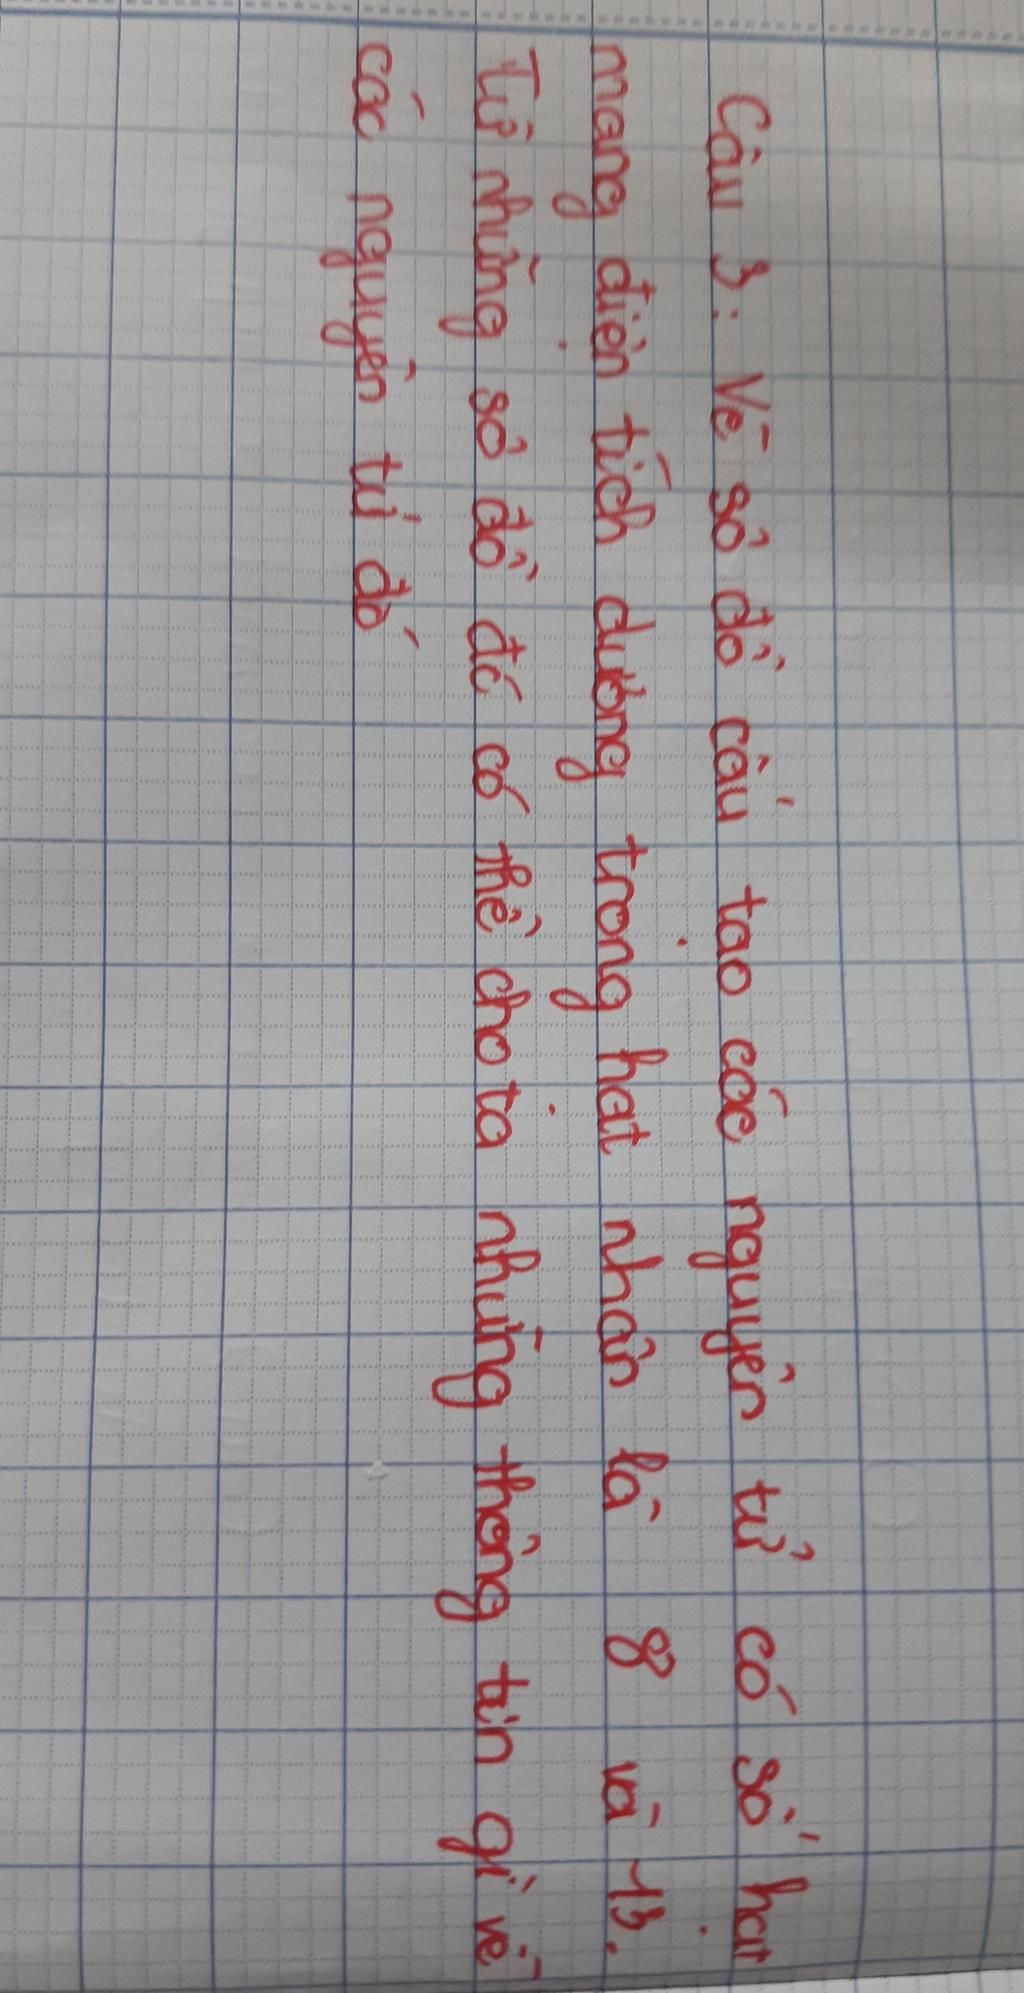 Câu 3: Vẽ sơ đồ cấu tạo các nguyên tử có số hạt
mang điện tích dương trong hạt nhân là 8 và 13.
Từ những sơ đồ đó có thể cho ta những thông tin gì về
các nguyên tử đó